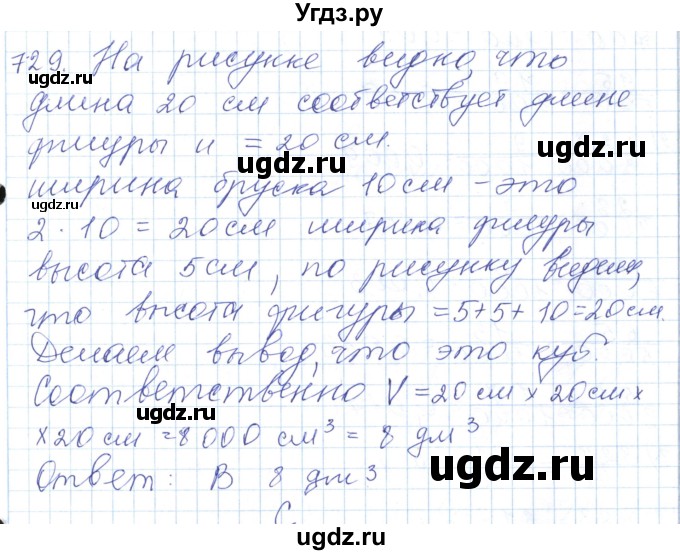 Угдз.ру
729. На рисунке видно, что
длина 20 см соответствует длине
фигуры и = 20 см.
ugdz.ru ugdz.ru
ширина бруска 10 см – это
2 · 10 = 20 см ширина фигуры
ugdz.ru
высота 5 см, по рисунку видим,
что высота фигуры = 5 + 5 + 10 = 20 см.
ugdz.ru ugdz.ru
Делаем вывод, что это куб.
Соответственно V = 20 см х 20 см х
ugdz.ru
х 20 см = 8 000 см³ = 8 дм³
ugdz.ru
Ответ: В 8 дм³
ugdz.ru